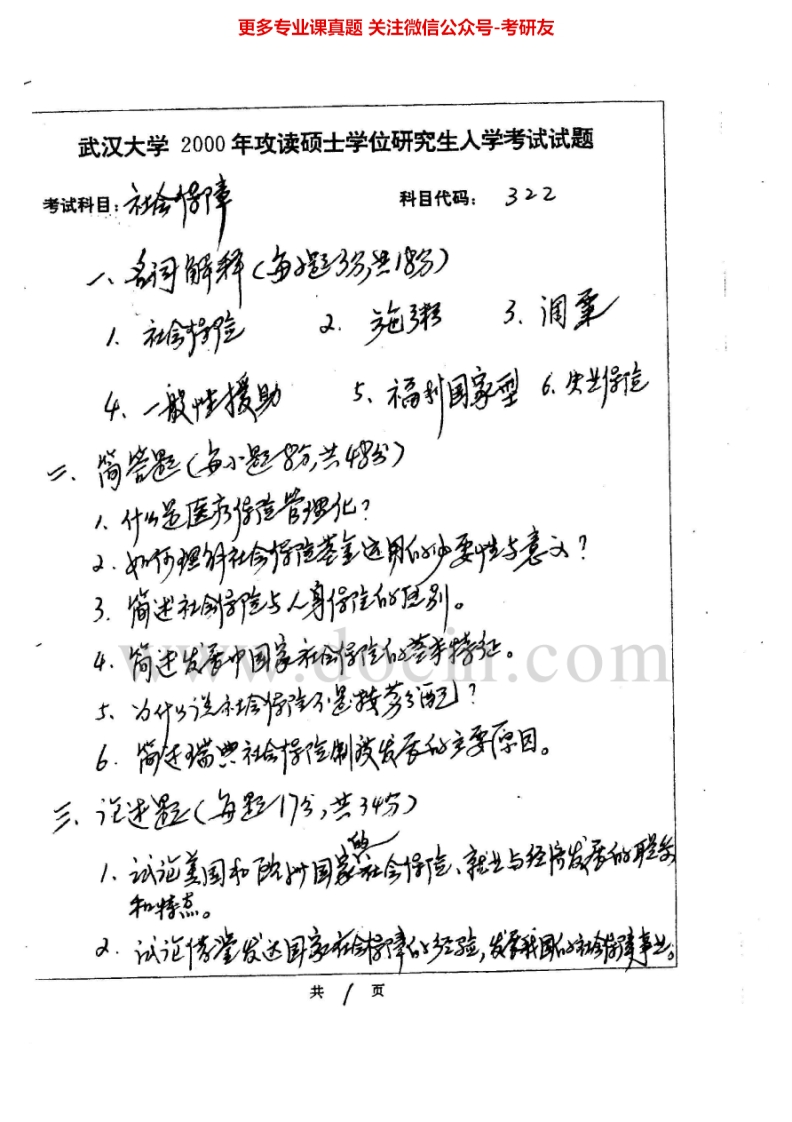 更多专业课真题 关注微信公众号-考研友
武汉大学 2000年攻读硕士学位研究生入学考试试题
考试科目：社会保障 科目代码：322
一、名词解释（每小题3分，共18分）
1. 社会保险 2. 施粥 3. 调粟
4. 一般性援助 5. 福利国家型 6. 失业保险
二、简答题（每小题8分，共48分）
1. 什么是医疗保险管理化？
2. 如何理解社会保险基金运用的必要性与意义？
3. 简述社会保险与人身保险的区别。
4. 简述发展中国家社会保险的基本特征。
www.docin.com
5. 为什么说社会保险不是按劳分配？
6. 简述瑞典社会保险制度发展的主要原因。
三、论述题（每题17分，共34分）
1. 试论美国和欧洲国家的社会保险、就业与经济发展的联系
和特点。
2. 试论借鉴发达国家社会保障的经验，发展我国的社会保障事业。
共 1 页